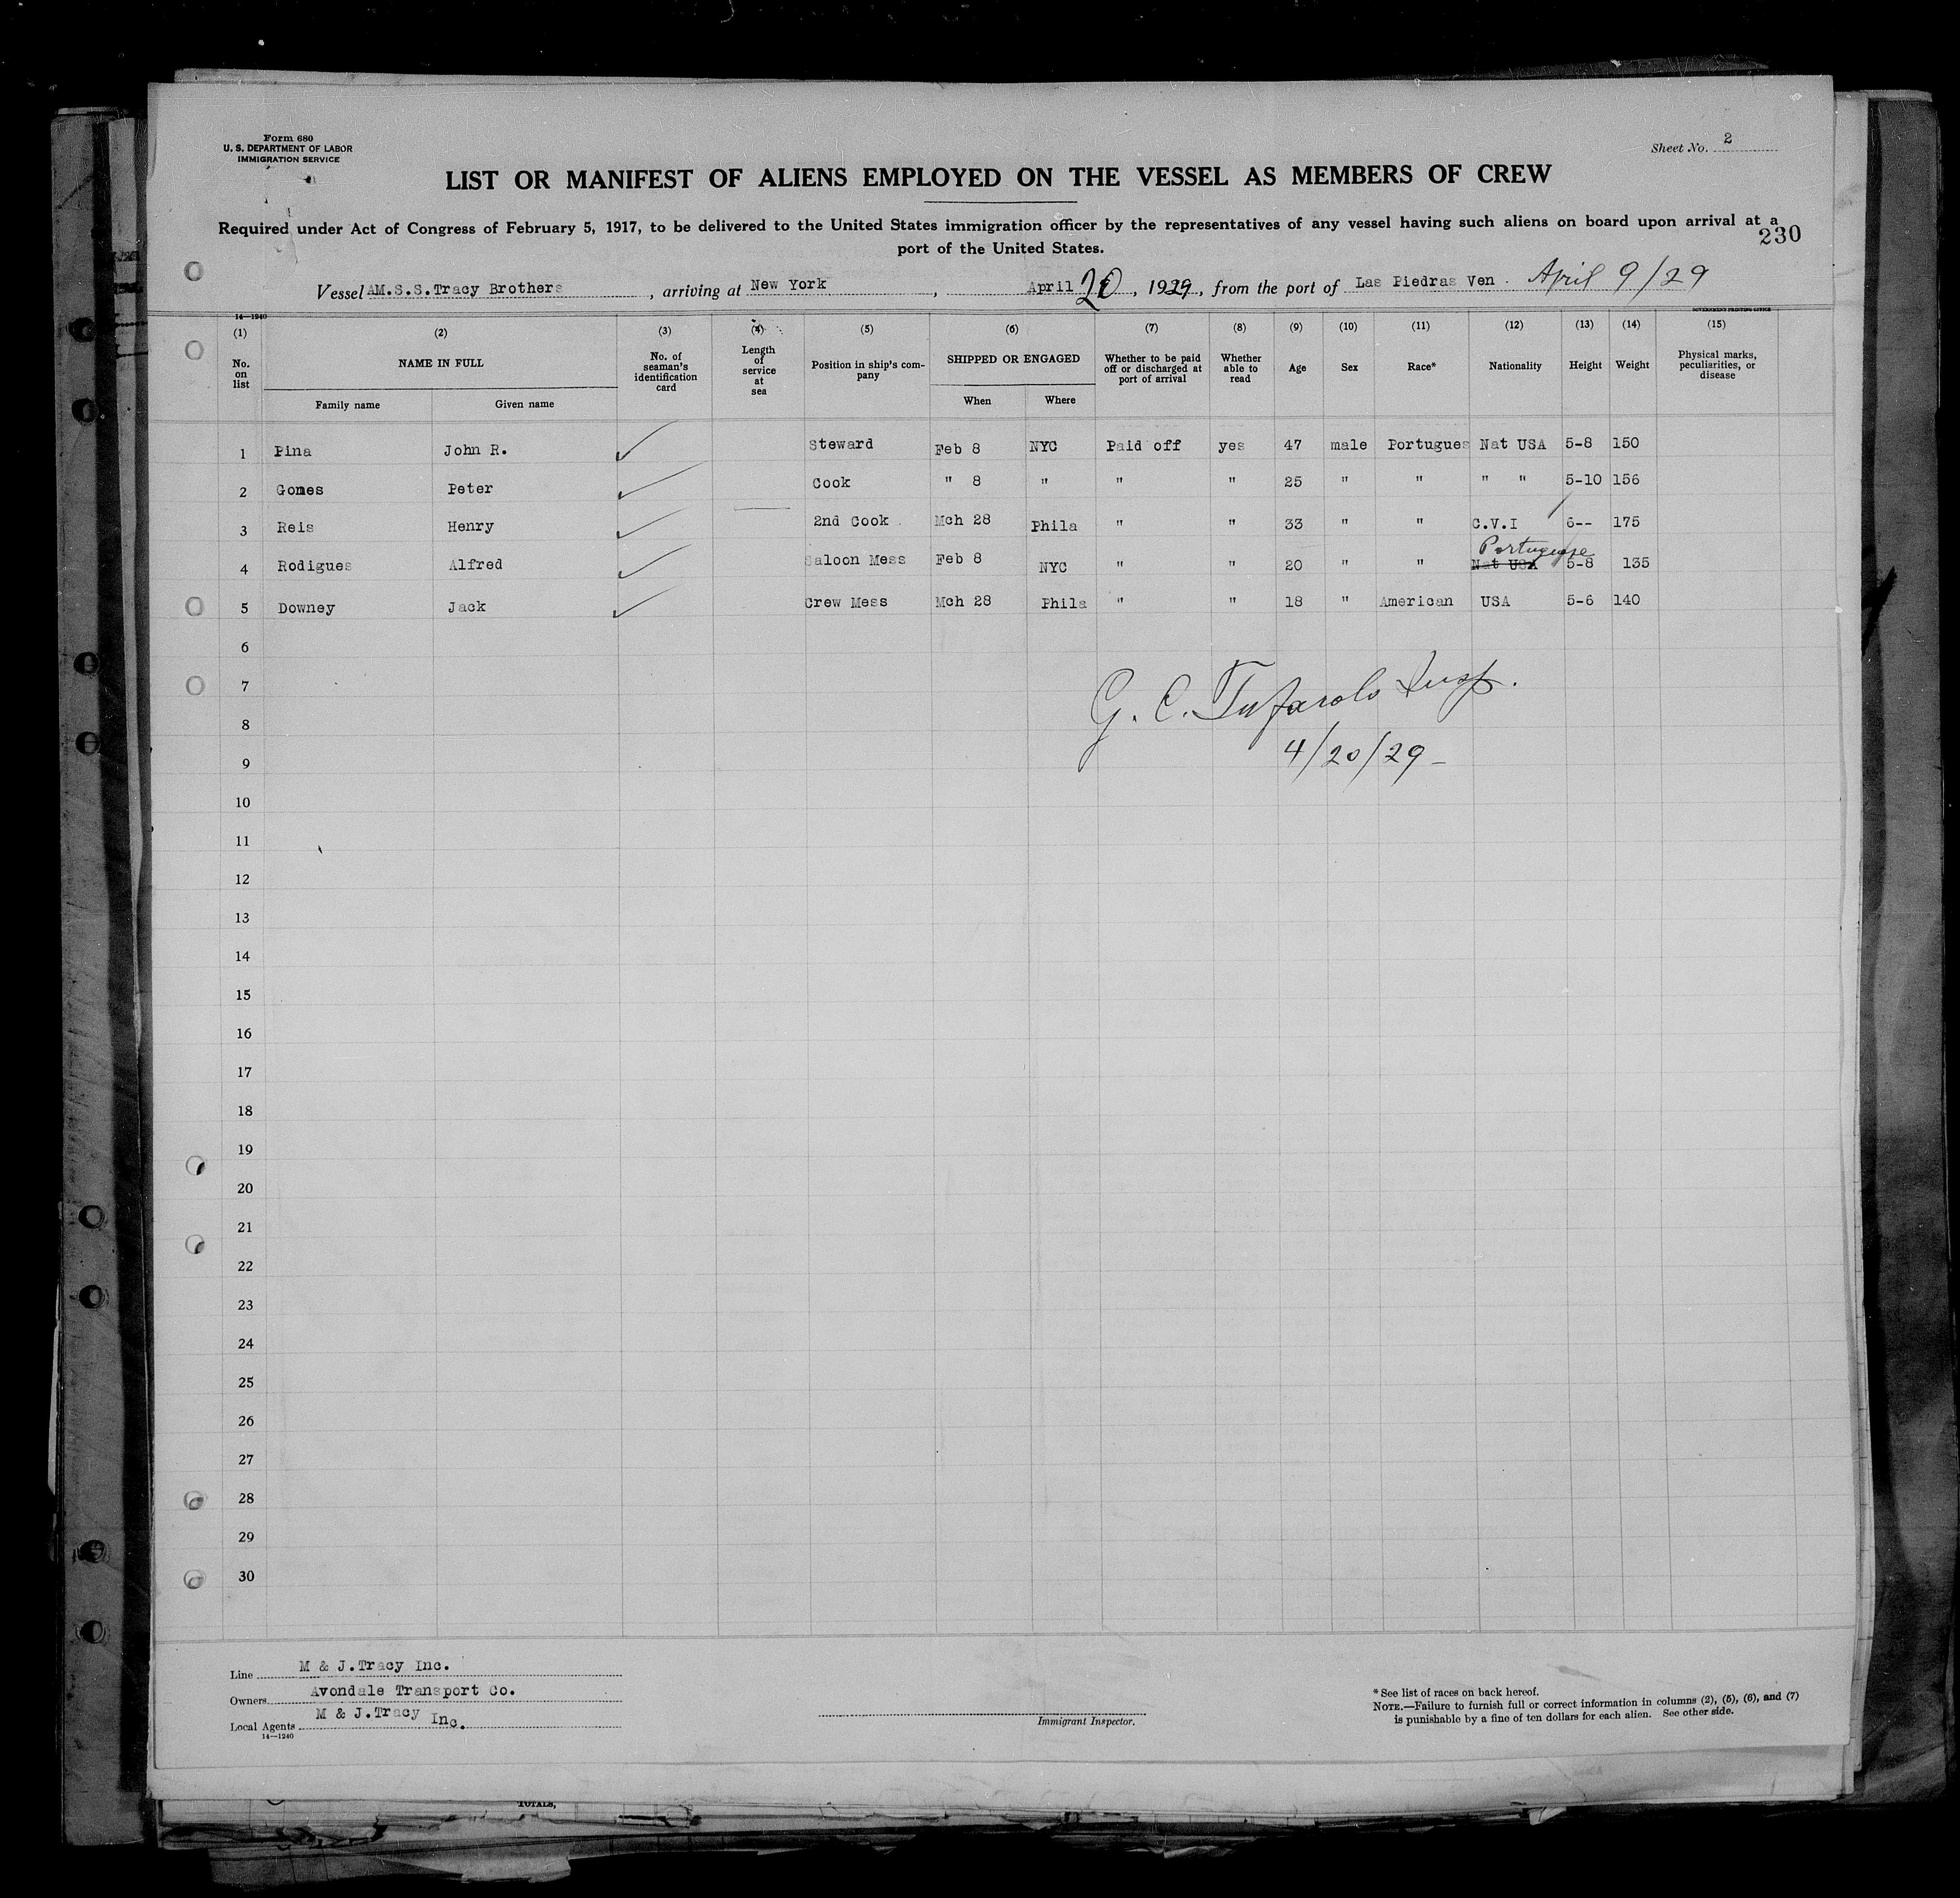 Form 680
U. S. DEPARTMENT OF LABOR
IMMIGRATION SERVICE
Sheet No. 2
LIST OR MANIFEST OF ALIENS EMPLOYED ON THE VESSEL AS MEMBERS OF CREW
Required under Act of Congress of February 5, 1917, to be delivered to the United States immigration officer by the representatives of any vessel having such aliens on board upon arrival at a
port of the United States.
230
Vessel AM.S.S.Tracy Brothers, arriving at New York, April 20, 1929, from the port of Las Piedras Ven. April 9/29
14—1240
GOVERNMENT PRINTING OFFICE
(1) (2) (3) (4) (5) (6) (7) (8) (9) (10) (11) (12) (13) (14) (15)
No. on list NAME IN FULL No. of seaman's identification card Length of service at sea Position in ship's company SHIPPED OR ENGAGED Whether to be paid off or discharged at port of arrival Whether able to read Age Sex Race* Nationality Height Weight Physical marks, peculiarities, or disease
Family name Given name When Where
1 Pina John R. Steward Feb 8 NYC Paid off yes 47 male Portugues Nat USA 5-8 150
2 Gomes Peter Cook " 8 " " " 25 " " " " 5-10 156
3 Reis Henry 2nd Cook Mch 28 Phila " " 33 " " C.V.I 6-- 175
Portuguese
4 Rodigues Alfred Saloon Mess Feb 8 NYC " " 20 " " Nat USA 5-8 135
5 Downey Jack Crew Mess Mch 28 Phila " " 18 " American USA 5-6 140
6
7
G. C. Tufarolo Insp.
8
9
4/20/29
10
11
12
13
14
15
16
17
18
19
20
21
22
23
24
25
26
27
28
29
30
Line M & J.Tracy Inc.
Owners Avondale Transport Co.
Local Agents M & J.Tracy Inc.
14—1240
Immigrant Inspector.
* See list of races on back hereof.
NOTE.—Failure to furnish full or correct information in columns (2), (5), (6), and (7)
is punishable by a fine of ten dollars for each alien. See other side.
TOTALS,